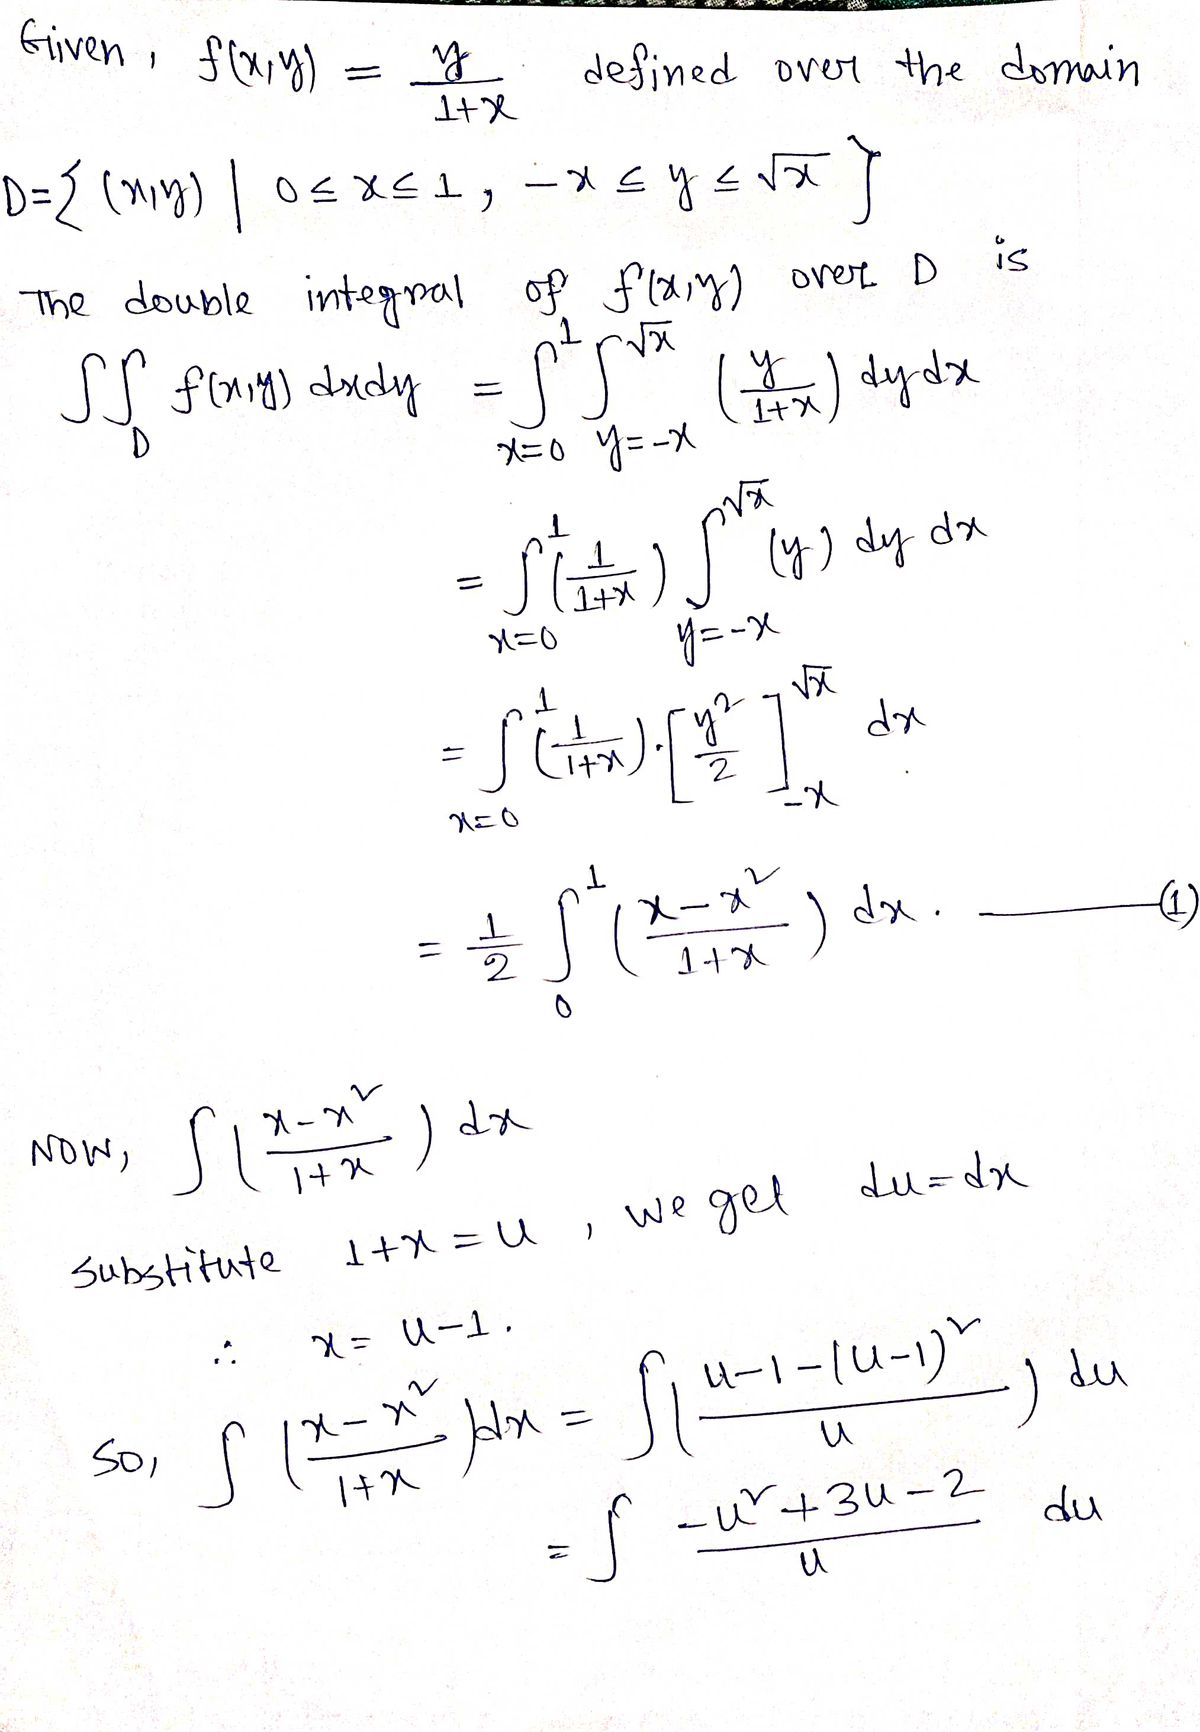 Given, f(x,y) = y/(1+x) defined over the domain
D={ (x,y) | 0≤x≤1, -x ≤ y ≤ √x }
The double integral of f(x,y) over D is
∬_D f(x,y) dxdy = ∫_{x=0}^{1} ∫_{y=-x}^{√x} (y/(1+x)) dy dx
= ∫_{x=0}^{1} (1/(1+x)) ∫_{y=-x}^{√x} (y) dy dx
= ∫_{x=0}^{1} (1/(1+x))·[y²/2]_{-x}^{√x} dx
= 1/2 ∫_0^1 ((x-x²)/(1+x)) dx. —— (1)
NOW, ∫((x-x²)/(1+x)) dx
substitute 1+x = u, we get du=dx
∴ x= u-1.
So, ∫((x-x²)/(1+x))dx = ∫((u-1-(u-1)²)/u) du
= ∫ (-u²+3u-2)/u du